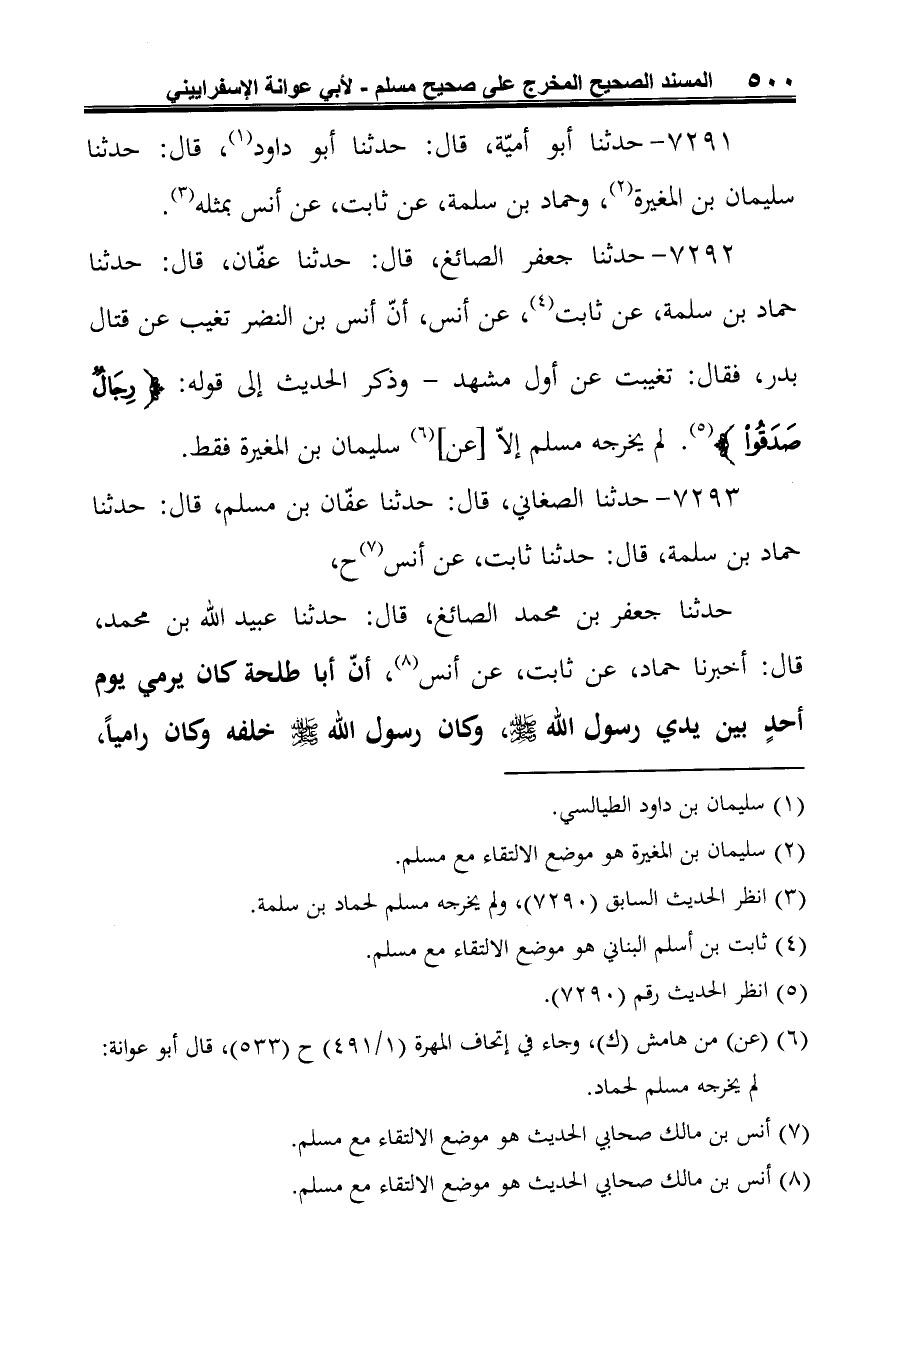 ٥٠٠ المسند الصحيح المخرج على صحيح مسلم - لأبي عوانة الإسفراييني
٧٢٩١- حدثنا أبو أميّة، قال: حدثنا أبو داود(١)، قال: حدثنا
سليمان بن المغيرة(٢)، وحماد بن سلمة، عن ثابت، عن أنس بمثله(٣).
٧٢٩٢- حدثنا جعفر الصائغ، قال: حدثنا عفّان، قال: حدثنا
حماد بن سلمة، عن ثابت(٤)، عن أنس، أنّ أنس بن النضر تغيب عن قتال
بدر، فقال: تغيبت عن أول مشهد - وذكر الحديث إلى قوله: ﴿رِجَالٌ
صَدَقُوا﴾(٥). لم يخرجه مسلم إلاّ [عن](٦) سليمان بن المغيرة فقط.
٧٢٩٣- حدثنا الصغاني، قال: حدثنا عفّان بن مسلم، قال: حدثنا
حماد بن سلمة، قال: حدثنا ثابت، عن أنس(٧)ح،
حدثنا جعفر بن محمد الصائغ، قال: حدثنا عبيد الله بن محمد،
قال: أخبرنا حماد، عن ثابت، عن أنس(٨)، أنّ أبا طلحة كان يرمي يوم
أحدٍ بين يدي رسول الله ﷺ، وكان رسول الله ﷺ خلفه وكان رامياً،
(١) سليمان بن داود الطيالسي.
(٢) سليمان بن المغيرة هو موضع الالتقاء مع مسلم.
(٣) انظر الحديث السابق (٧٢٩٠)، ولم يخرجه مسلم لحماد بن سلمة.
(٤) ثابت بن أسلم البناني هو موضع الالتقاء مع مسلم.
(٥) انظر الحديث رقم (٧٢٩٠).
(٦) (عن) من هامش (ك)، وجاء في إتحاف المهرة (٤٩١/١) ح (٥٣٣)، قال أبو عوانة:
لم يخرجه مسلم لحماد.
(٧) أنس بن مالك صحابي الحديث هو موضع الالتقاء مع مسلم.
(٨) أنس بن مالك صحابي الحديث هو موضع الالتقاء مع مسلم.